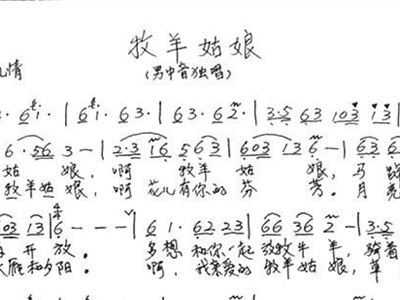 牧羊姑娘
情 (男中音独唱)
· 6i· | 6i· 63· | 63· 62 · | 3·5 63 103 13
6·56 3 — | 2·3 16 563 | 603 136 — | 63 6
姑 娘, 啊 牧羊 姑 娘, 马
牧羊姑 娘, 啊 花儿有你的 芬 芳。月亮
03 13 | 6 - - - | 6 1· 62 23 | 66 36 2 — | 3·5
开 放。 多想 和你一起 放牧牛 羊, 骑着
雁和夕阳。 啊, 我亲爱的 牧羊姑 娘, 草